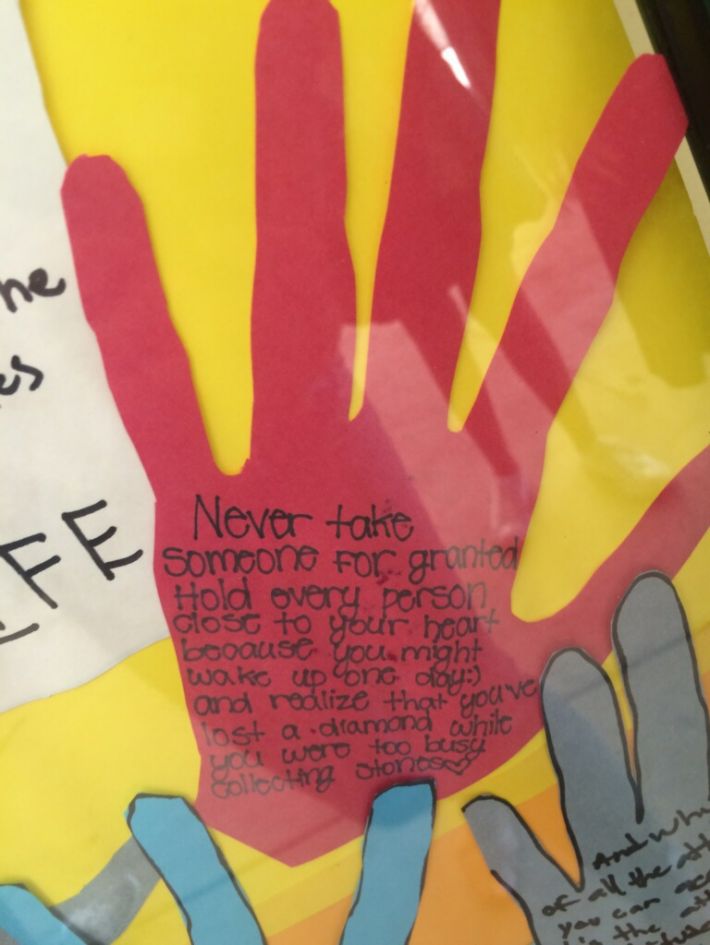 he
es
FE
Never take
someone for granted
Hold every person
close to your heart
because you might
wake up one day:)
and realize that you've
lost a diamond while
you were too busy
collecting stones♡
And wh
of all the att
you can acc
is the att